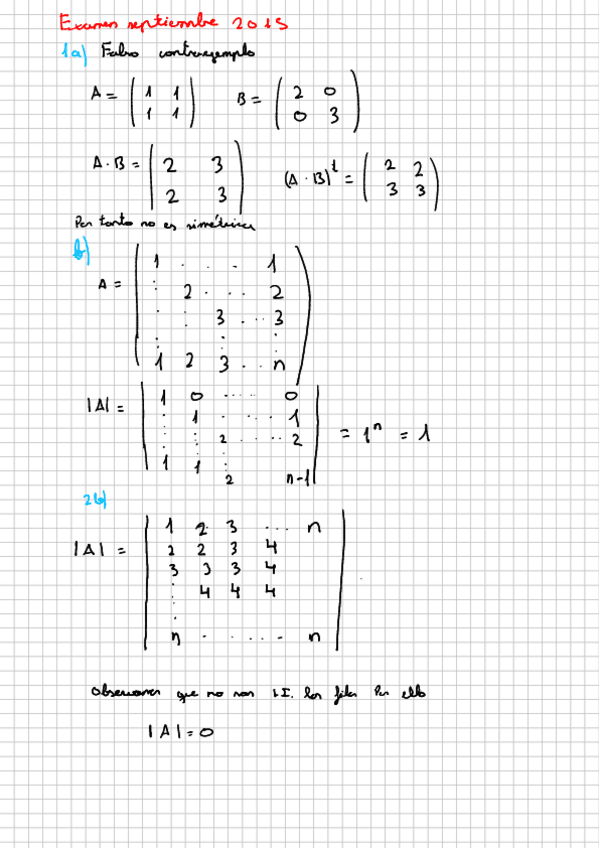 Examen septiembre 2015
1a) Falso contraejemplo
A = ( 1 1 B = ( 2 0
1 1 ) 0 3 )
A · B = ( 2 3 (A · B)^t = ( 2 2
2 3 ) 3 3 )
Por tanto no es simétrica
b)
A = ( 1 . . . . 1
⋮ 2 . . . 2
⋮ ⋮ 3 . . . 3
⋮ ⋮ ⋮
1 2 3 . . n )
|A| = | 1 0 ..... 0
⋮ 1 . . . . 1
⋮ ⋮ 2 ..... 2 | = 1^n = 1
1 1 ⋮
2 n-1 |
2b)
|A| = | 1 2 3 ... n
2 2 3 4
3 3 3 4
⋮ 4 4 4
⋮
n . . . . . . n |
Observamos que no son L.I. las filas Por ello
|A| = 0